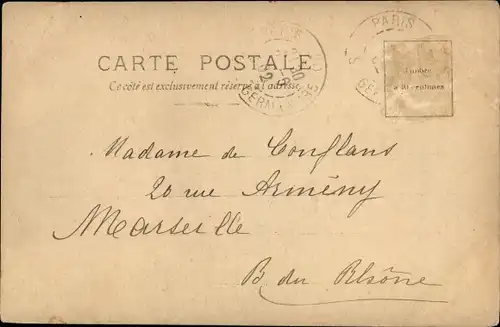 PARIS
CARTE POSTALE
Ce côté est exclusivement réservé à l'adresse
GERMAIN
Timbre
à 10 centimes
Madame de Conflans
20 rue Armény
Marseille
B. du Rhône